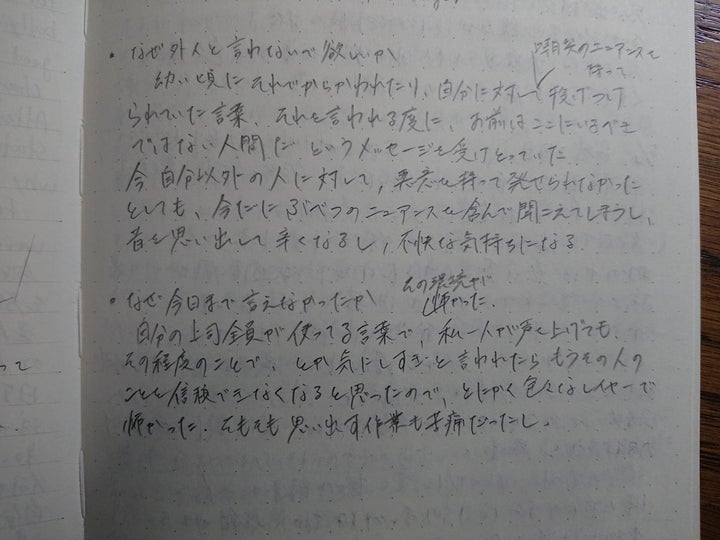 ・なぜ外人と言われないで欲しいか
嘲笑のニュアンスを
持って
幼い頃にそれでからかわれたり、自分に対して投げつけ
られていた言葉、それを言われる度に、お前はここにいるべき
ではない人間だ というメッセージを受けとっていた
今自分以外の人に対して、悪意を持って発せられなかった
としても、今だにぶべつのニュアンスを含んで聞こえてしまうし、
昔を思い出して辛くなるし、不快な気持ちになる
・なぜ今日まで言えなかったか
その環境が
怖かった.
自分の上司全員が使ってる言葉で、私一人が声を上げても、
その程度のことで、とか気にしすぎと言われたら もうその人の
ことを信頼できなくなると思ったので、とにかく色々なレイヤーで
怖かった. そもそも思い出す作業も苦痛だったし.